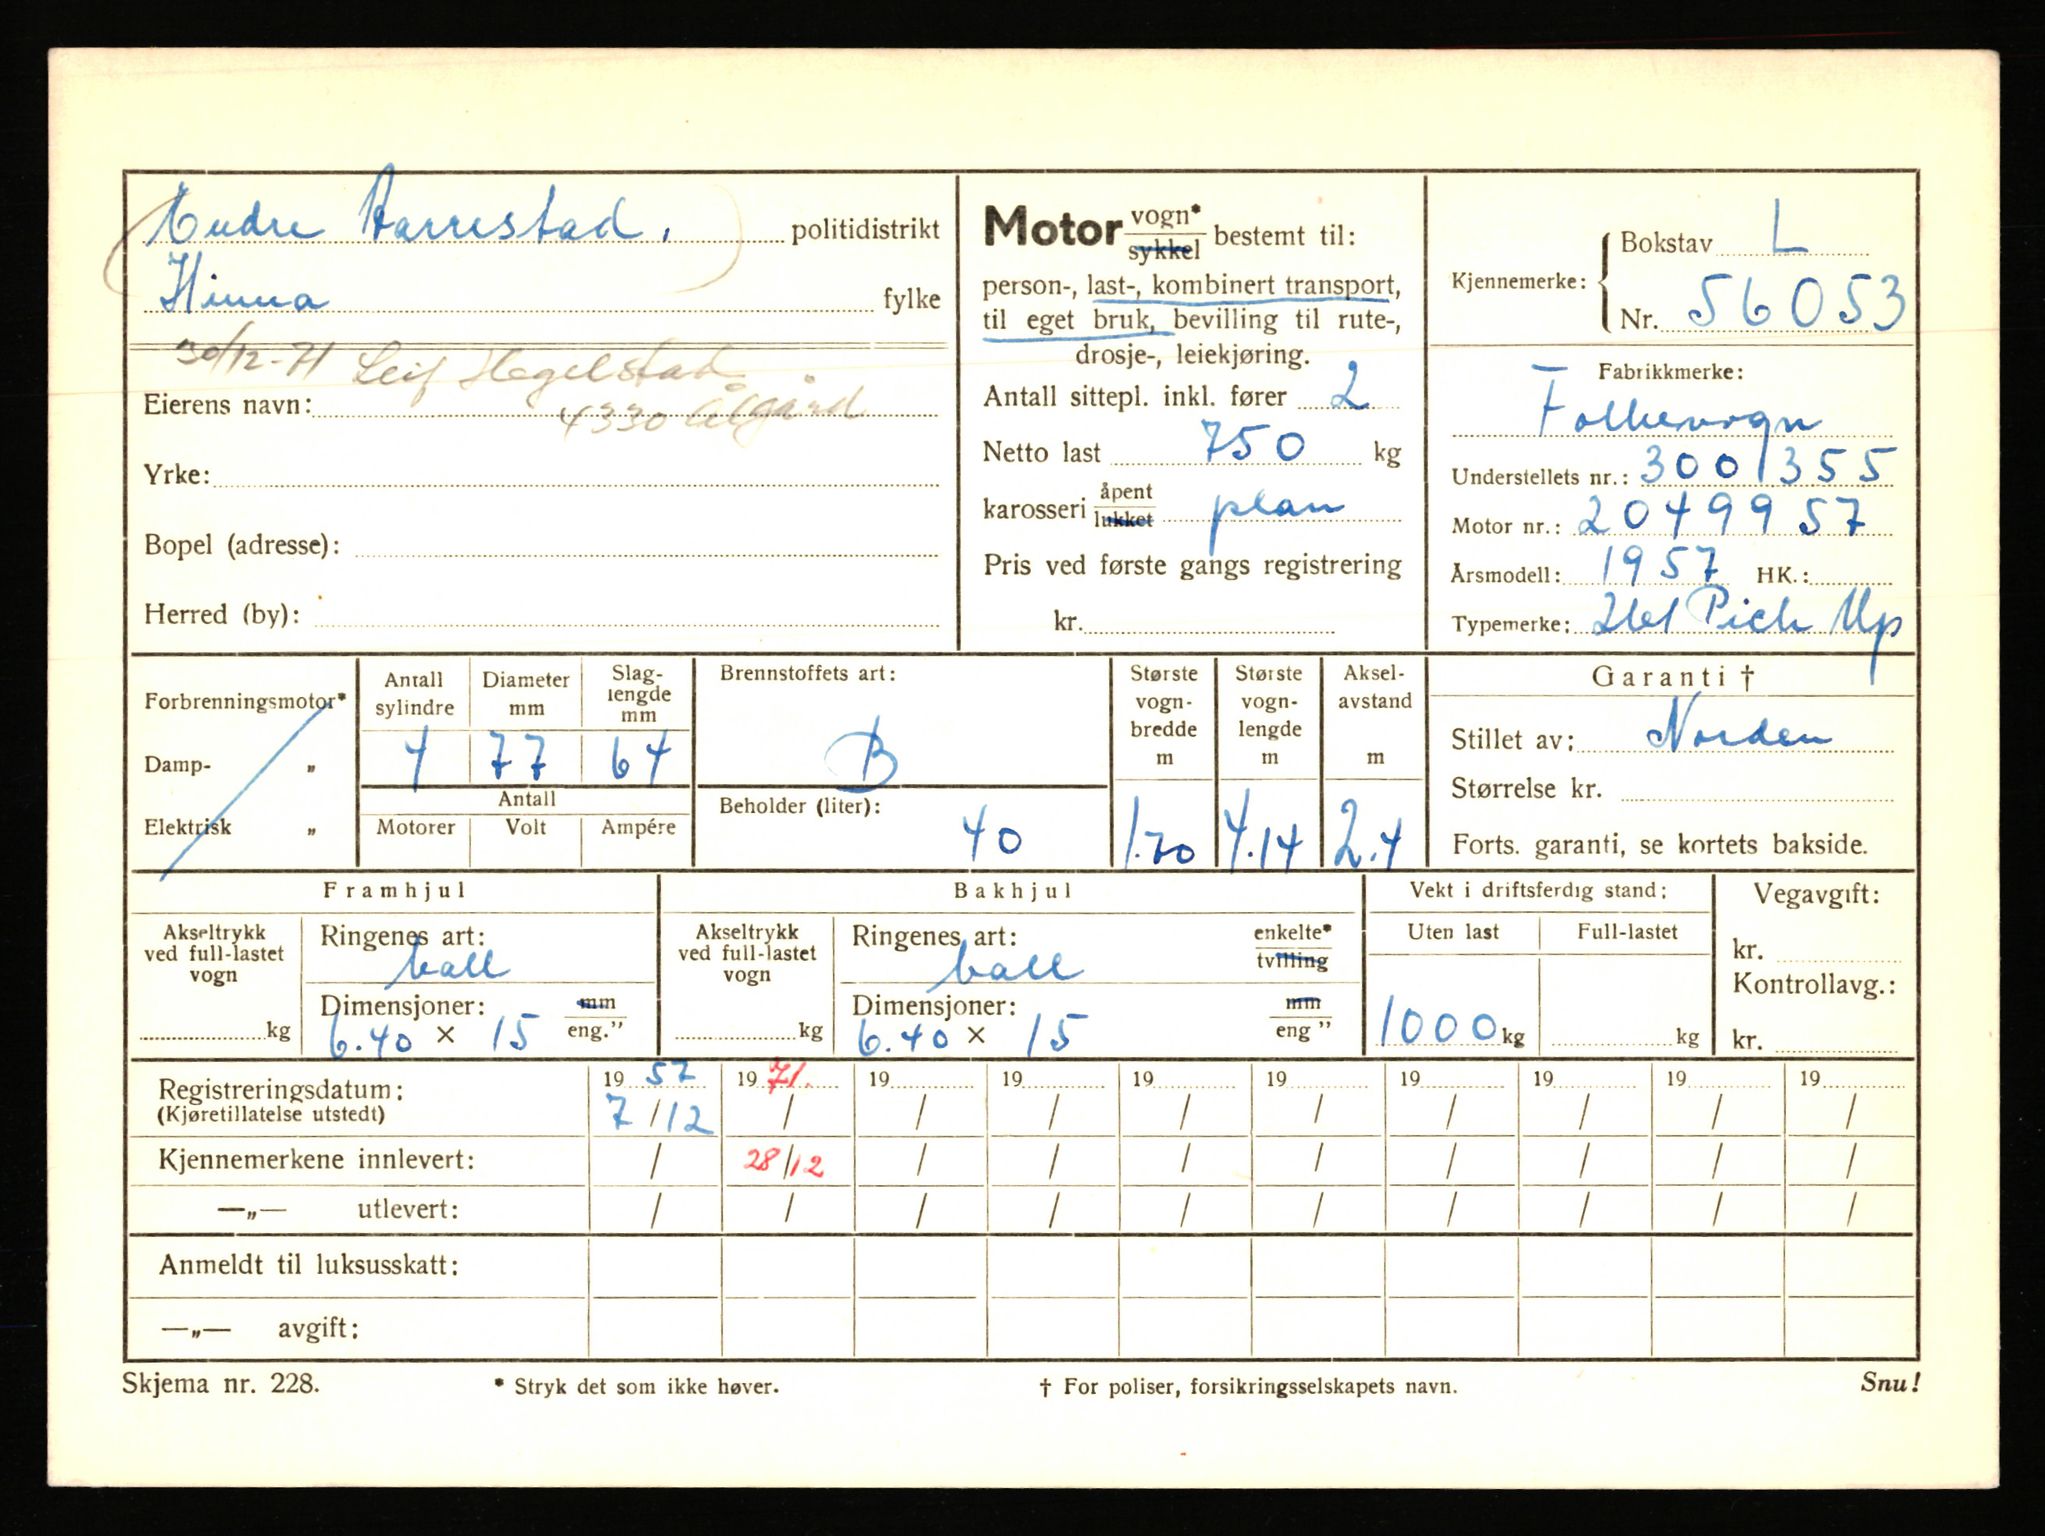 Endre Harrestad. politidistrikt
Hinna fylke
30/12-71 Leif Hegelstad
4330 Ålgård
Eierens navn:
Yrke:
Bopel (adresse):
Herred (by):
Motor vogn*
sykkel bestemt til:
person-, last-, kombinert transport,
til eget bruk, bevilling til rute-,
drosje-, leiekjøring.
Antall sittepl. inkl. fører 2
Netto last 750 kg
karosseri åpent
lukket plan
Pris ved første gangs registrering
kr.
Kjennemerke: Bokstav L
Nr. 56053
Fabrikkmerke:
Folkevogn
Understellets nr.: 3001355
Motor nr.: 2049957
Årsmodell: 1957 HK.:
Typemerke: 261 Pick Up
Forbrenningsmotor*
Damp- „
Elektrisk „
Antall sylindre 4
Diameter mm 77
Slaglengde mm 64
Antall
Motorer Volt Ampére
Brennstoffets art:
B
Beholder (liter):
40
Største vogn-bredde m 1.70
Største vogn-lengde m 4.14
Aksel-avstand m 2.4
Garanti †
Stillet av: Norden
Størrelse kr.
Forts. garanti, se kortets bakside.
Framhjul
Akseltrykk ved full-lastet vogn kg
Ringenes art:
ball
Dimensjoner: mm
6.40 × 15 eng.”
Bakhjul
Akseltrykk ved full-lastet vogn kg
Ringenes art: enkelte*
ball tvilling
Dimensjoner: mm
6.40 × 15 eng ”
Vekt i driftsferdig stand:
Uten last Full-lastet
1000 kg kg
Vegavgift:
kr.
Kontrollavg.:
kr.
Registreringsdatum: 1957 1971. 19 19 19 19 19 19 19 19
(Kjøretillatelse utstedt) 7/12 / / / / / / / / /
Kjennemerkene innlevert: / 28/12 / / / / / / / /
—„— utlevert: / / / / / / / / / /
Anmeldt til luksusskatt:
—„— avgift:
Skjema nr. 228. * Stryk det som ikke høver. † For poliser, forsikringsselskapets navn. Snu!